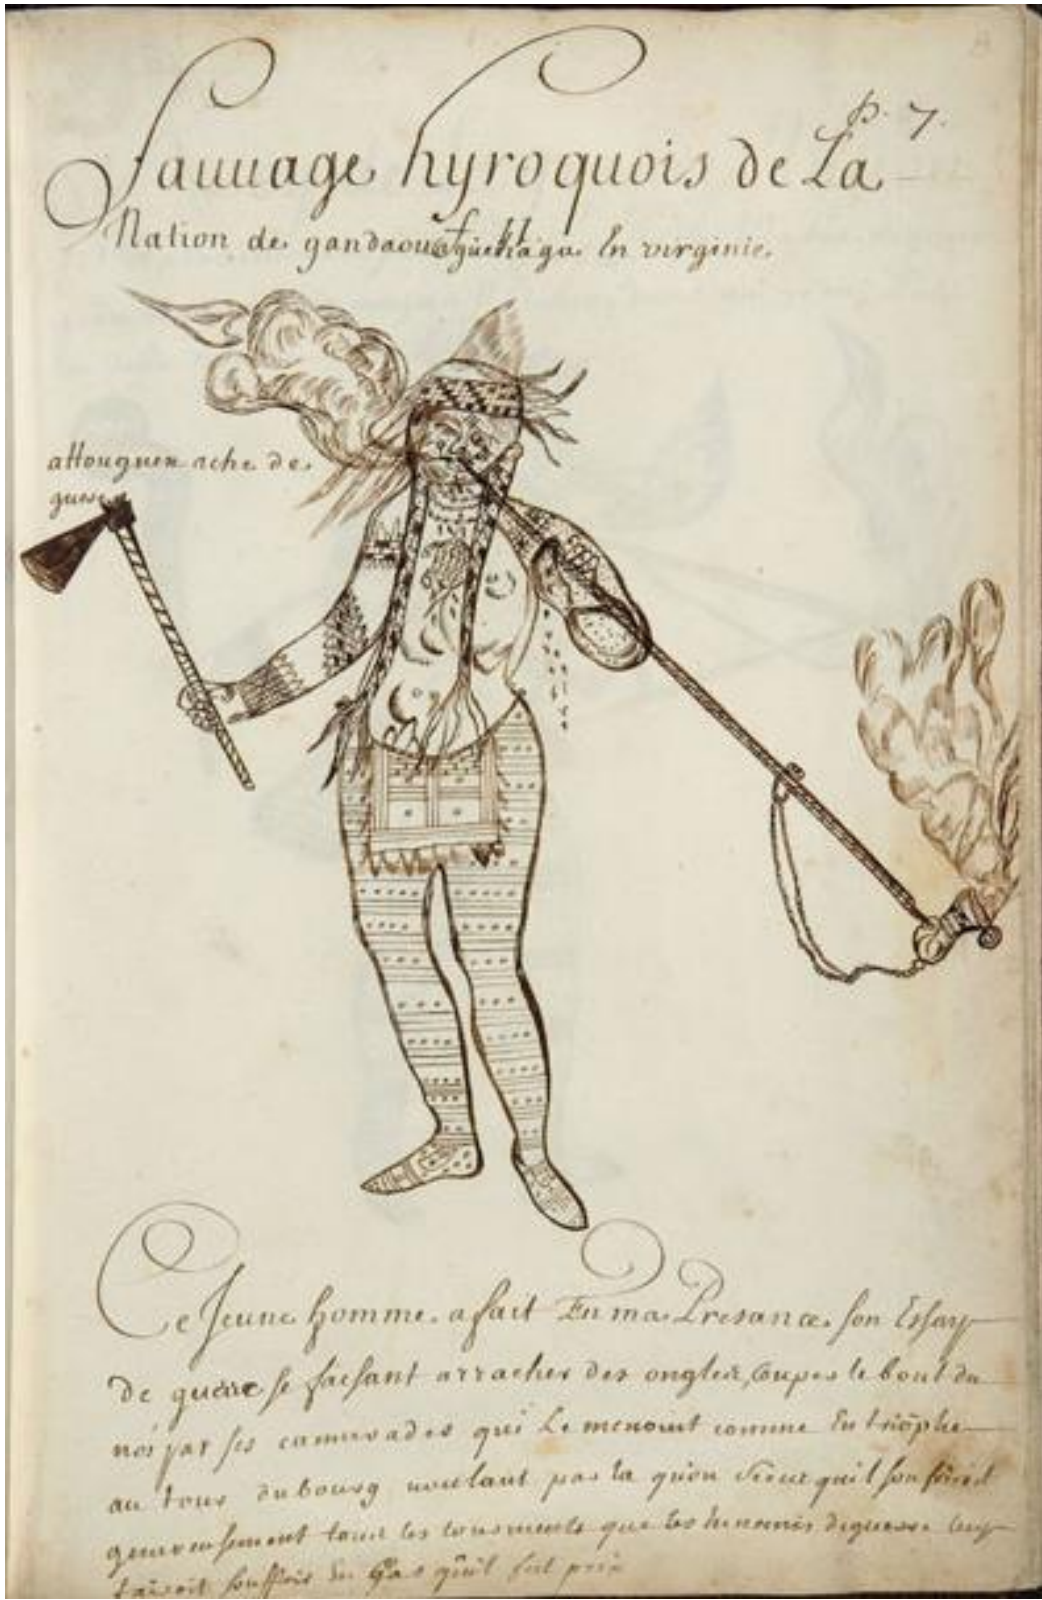 p. 7.
Sauuage hyroquois de La
Nation de gandaouagüehaga En virginie.
attouguen ache de
guere
Ce Jeune homme a fait En ma Presance son Essay
de guere se faisant arracher des ongles, Couper le bout du
nés par ses camarades qui Le menoint comme En triõphe
au tour du bourg uoulant par la quon Sceut quil souffriroit
genereusement tous les tourments que les hennemis de guerre luy
fairoit souffrir En Cas quil fut pris